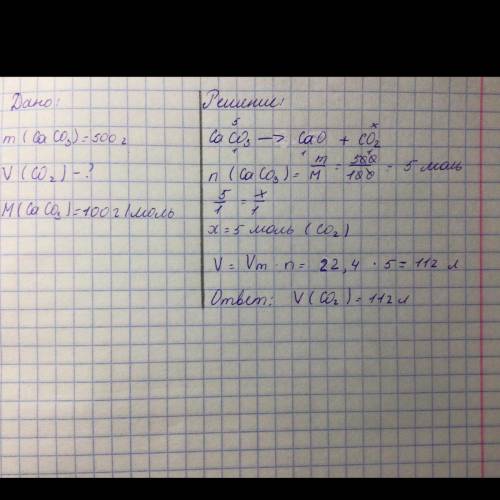 Дано:
m (CaCO3) = 500 г
V (CO2) - ?
M (CaCO3) = 100 г/моль
Решение:
5 x
CaCO3 → CaO + CO2
1 1 1
n (CaCO3) = m/M = 500/100 = 5 моль
5/1 = x/1
x = 5 моль (CO2)
V = Vm · n = 22,4 · 5 = 112 л
Ответ: V (CO2) = 112 л